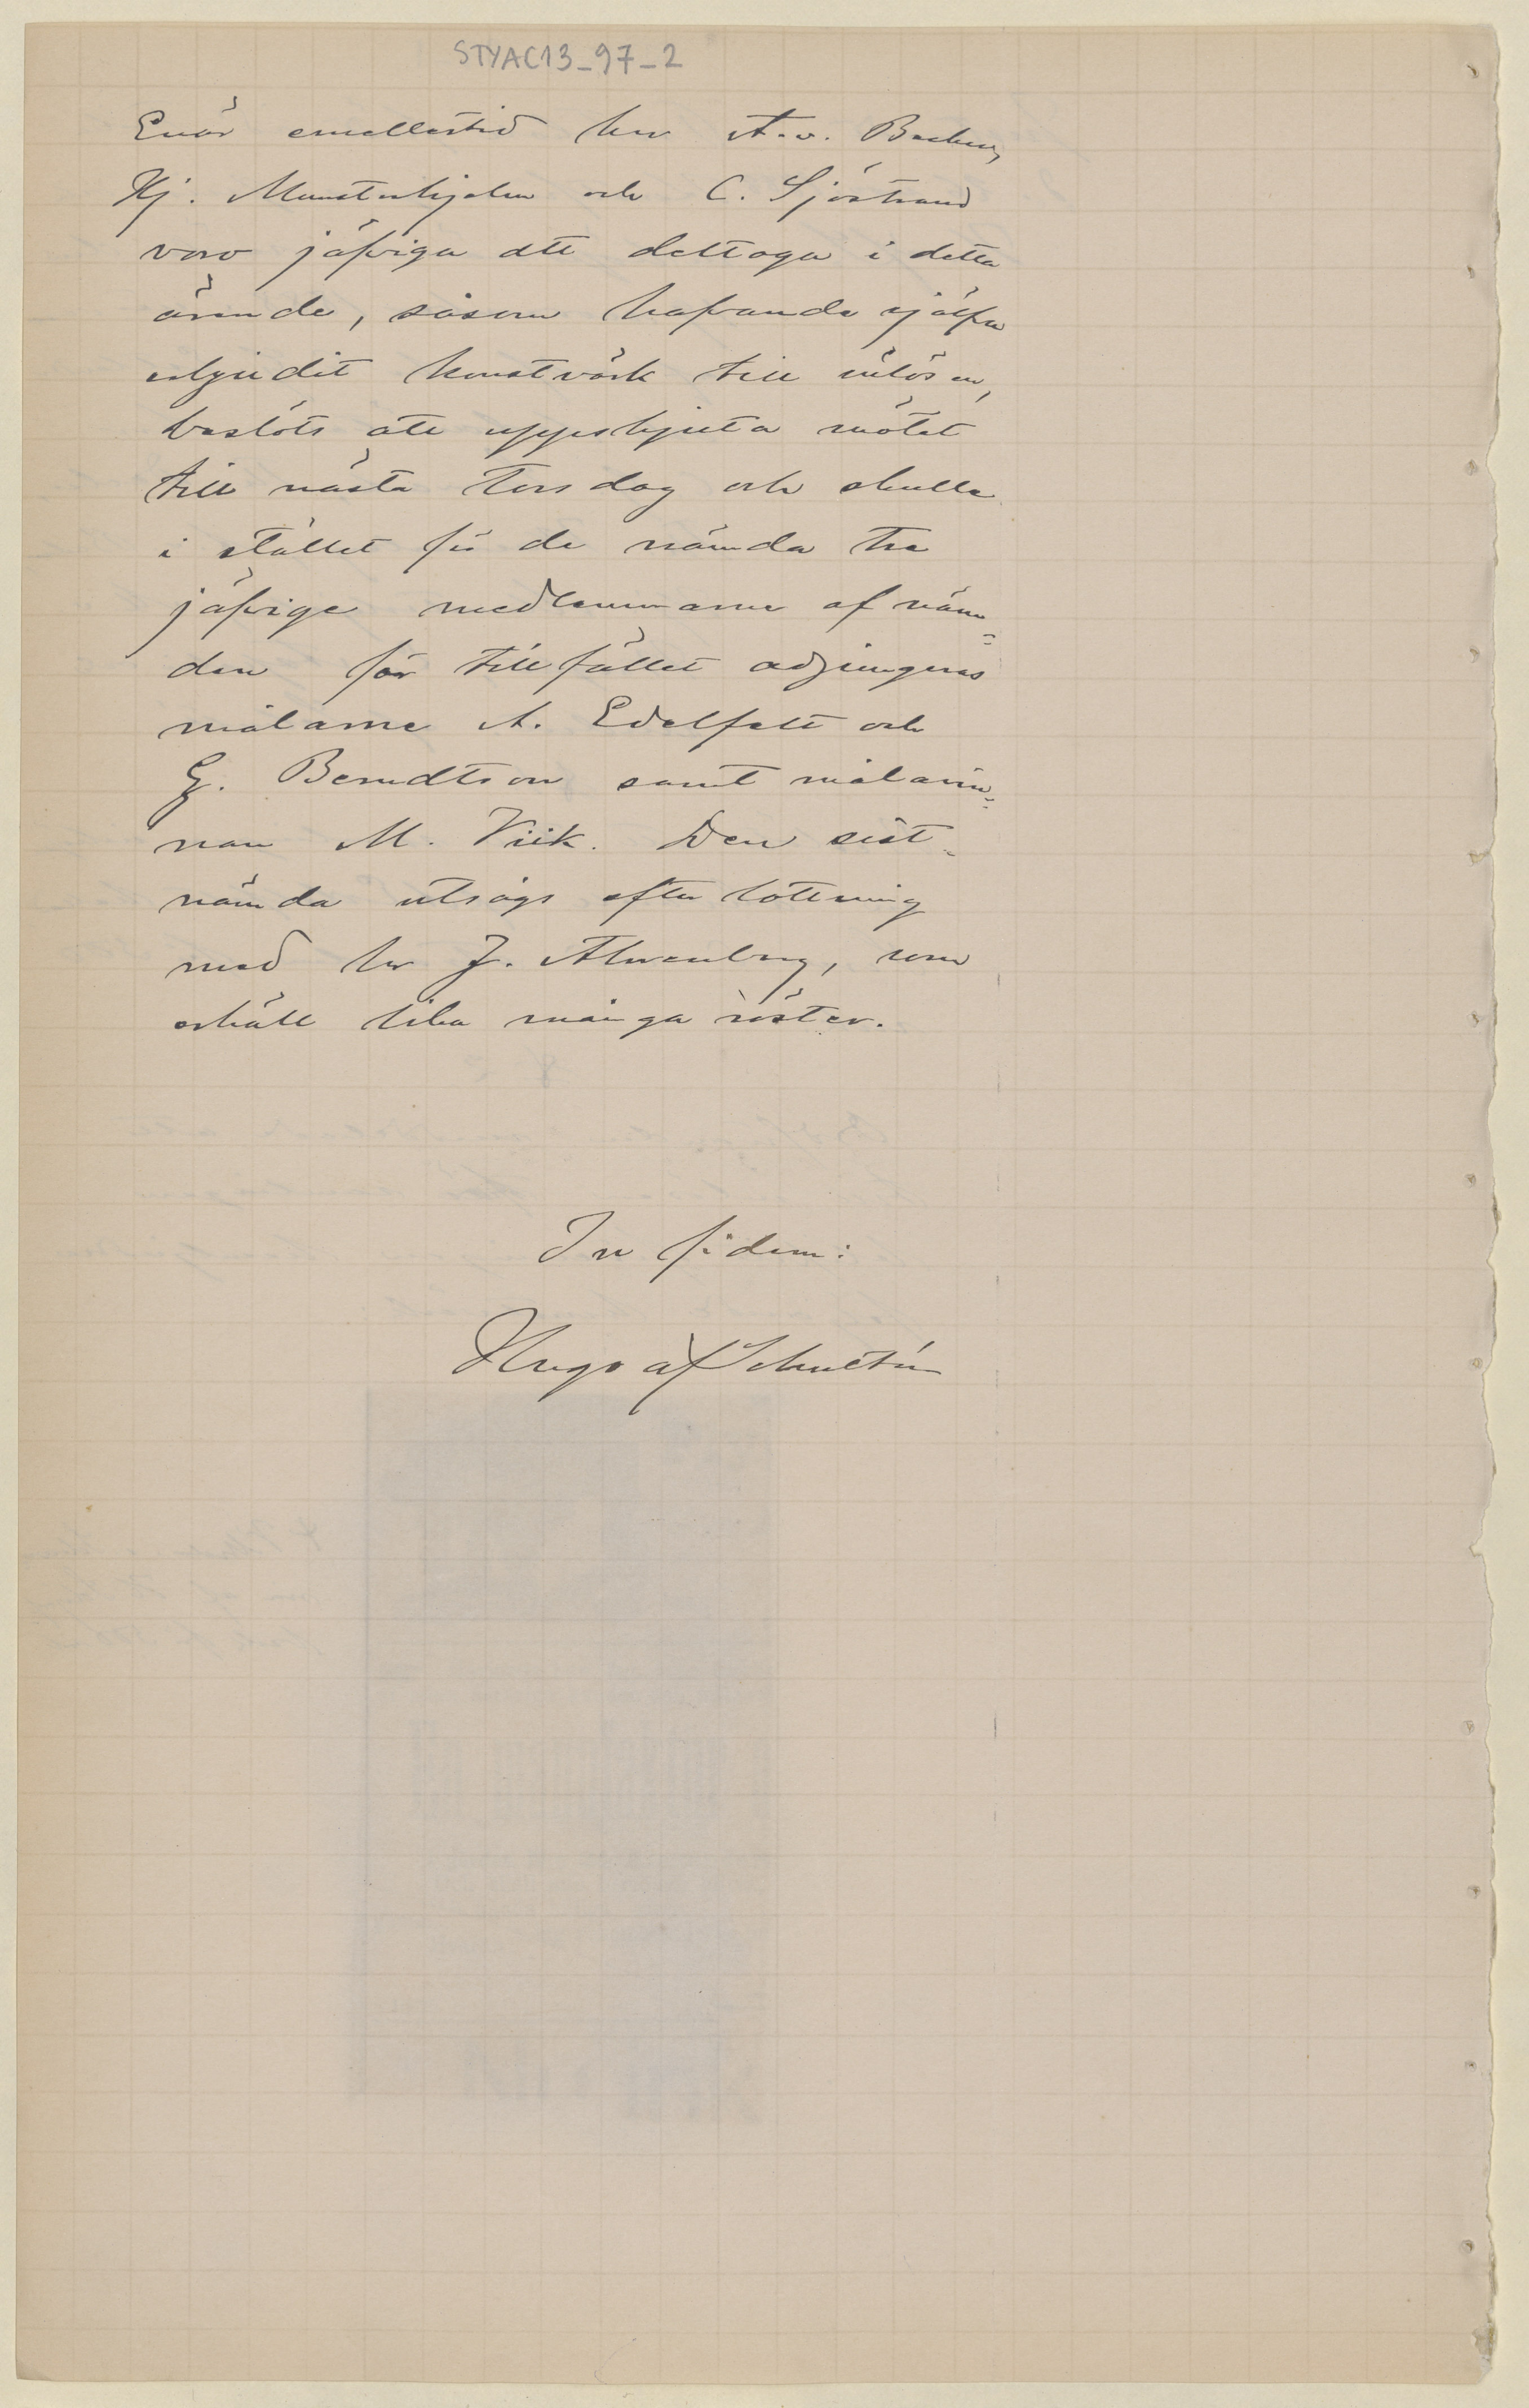 STYAC13_97_2
Enär emellertid hrr A. v. Becker,
Hj. Munsterhjelm och C. Sjöstrand
voro jäfviga att deltaga i detta
ärende, såsom hafvande sjelfva
erbjudit konstvärk till inlösen,
beslöts att uppskjuta mötet
till nästa Torsdag och skulle
i stället för de nämda tre
jäfviga medlemmarne af näm=
den för tillfället adjungeras
målarne A. Edelfelt och
G. Berndtson samt målarin=
nan M. Viik. Den sist-
nämda utsågs efter lottning
med hr J. Ahrenberg, som
erhöll lika många röster.
In fidem:
Hugo af Schultén